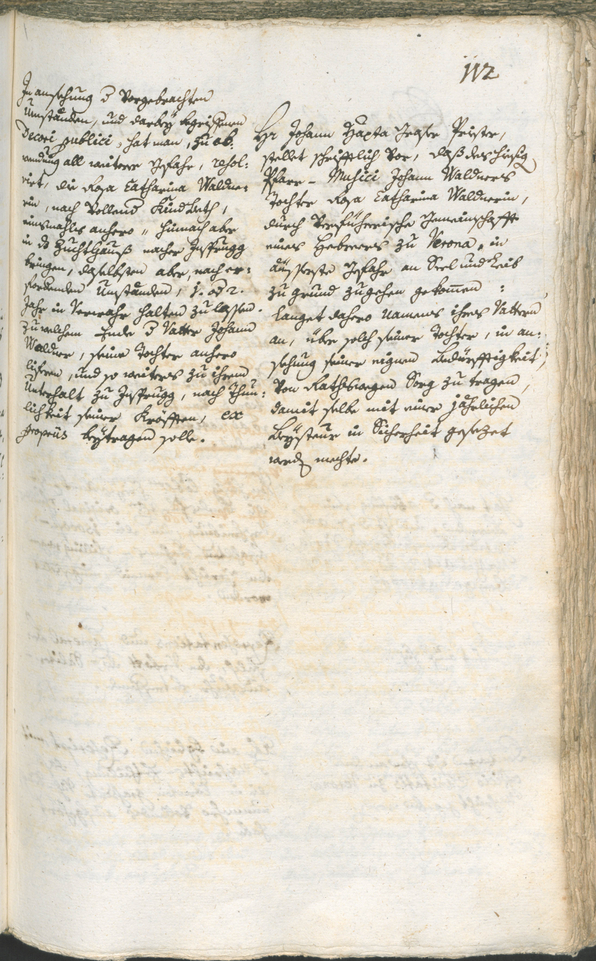 112
In ansehung d Vorgebrachten
Umständen, und darbey begriffenen
Decori publici, hat man, zu ab-
wendung all weiterer Gefahr, resol-
virt, die Rosa Catharina Waldne-
rin, nach Vollend Kindbeth,
einsmahls anhero
in dz Zuchthauß nacher Insprugg
bringen, daselbsten aber, nach er-
fordrenden Umständen, 1. od 2.
Jahr in Verwahr halten zu lassen.
Zu welchem Ende d Vatter Johann
Waldner, seine Tochter anhero
lifern, und so weiters zu ihrem
Unterhalt zu Insprugg, nach Thun-
lichkeit seiner Kräfften, ex
propriis beytragen solle.
Hr Johann Bapta Priester,
stellet schrifftlich Vor, daß des hiesig
Pfarr-Musici Johann Waldners
Tochter Rosa Catharina Waldnerin,
durch Verführerische Gemeinschafft
eines Hebreers zu Verona, in
äusserste Gefahr an Seel und Leib
zu grund zugehen gekommen:
langet dahero Namens ihres Vattern
an, über solch seiner Tochter, in an-
sehung seiner eignen Bedürfftigkeit,
Von Rathswegen Sorg zu tragen,
damit selbe mit einer jährlichen
Beysteur in Sicherheit gesezet
werd mechte.